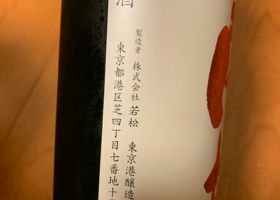 酒
製造者 株式会社若松 東京港醸造
東京都港区芝四丁目七番地十